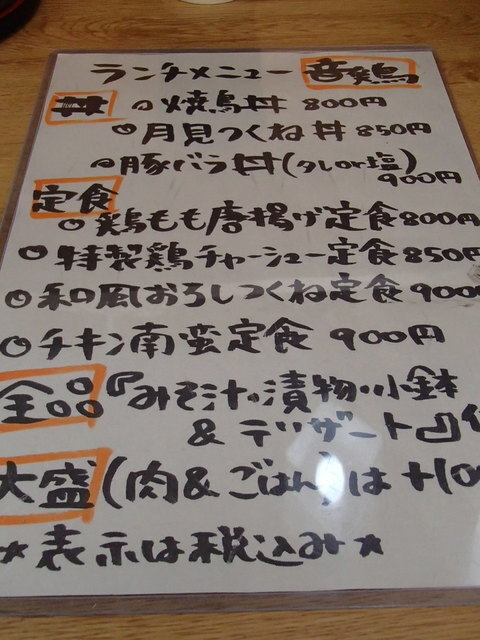 ランチメニュー 音鶏
丼 焼鳥丼 800円
月見つくね丼 850円
豚バラ丼(タレor塩)
900円
定食
鶏もも唐揚げ定食 800円
特製鶏チャーシュー定食 850円
和風おろしつくね定食 900
チキン南蛮定食 900円
全品 『みそ汁・漬物・小鉢
& デザート』付
大盛 (肉&ごはん)は +10
★表示は税込み★